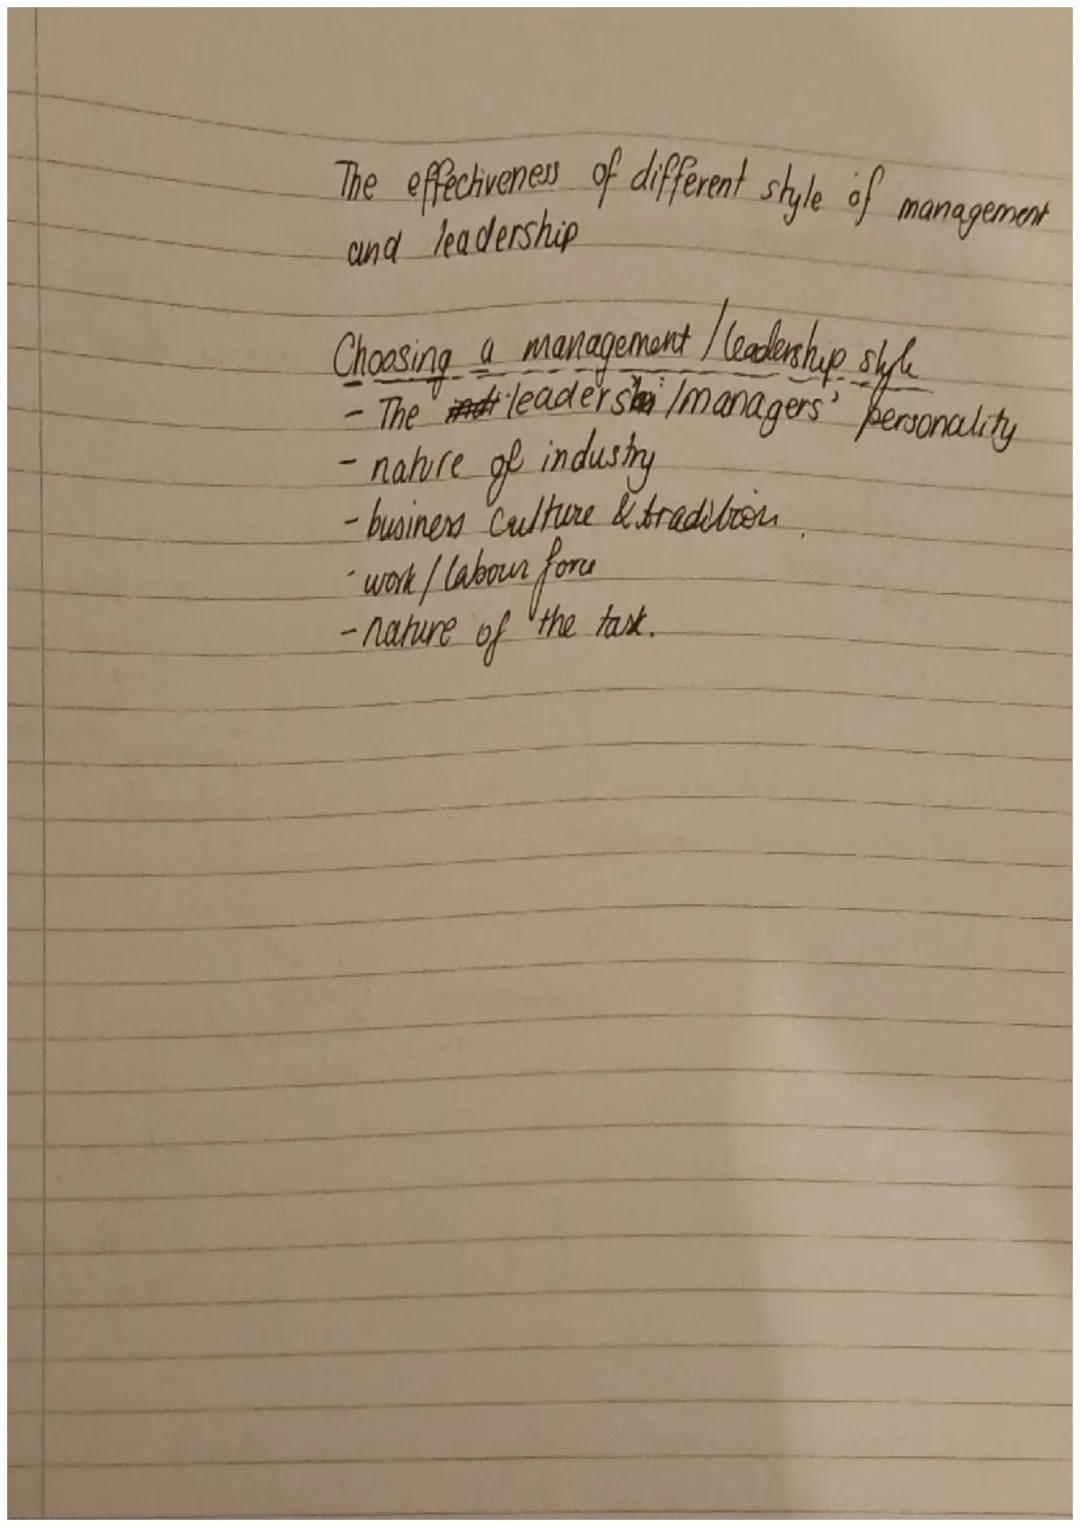 The effectiveness of different style of management
and leadership
Choosing a management / leadership style
- The leaders /managers' personality
- nature of industry
- business culture & tradition.
- work / labour force
- nature of the task.